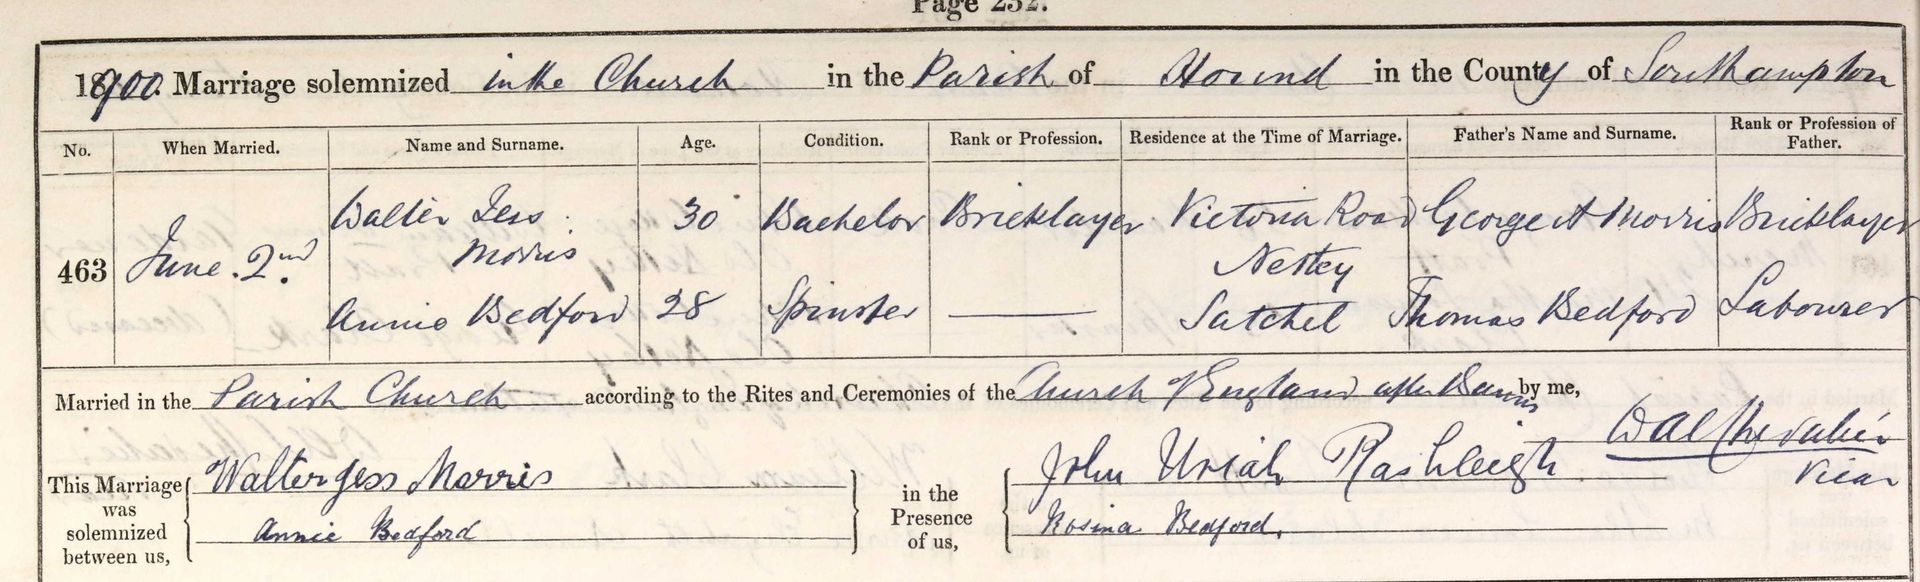 Page 232.
1900. Marriage solemnized in the Church in the Parish of Hound in the County of Southampton
No. When Married. Name and Surname. Age. Condition. Rank or Profession. Residence at the Time of Marriage. Father's Name and Surname. Rank or Profession of Father.
463 June 2nd. Walter Jess Morris 30 Bachelor Bricklayer Victoria Road Netley George A Morris Bricklayer
Annie Bedford 28 Spinster — Satchel Thomas Bedford Labourer
Married in the Parish Church according to the Rites and Ceremonies of the Church of England after Banns by me,
Vicar
This Marriage was solemnized between us, Walter Jess Morris in the Presence of us, John Uriah Rashleigh
Annie Bedford Rosina Bedford.